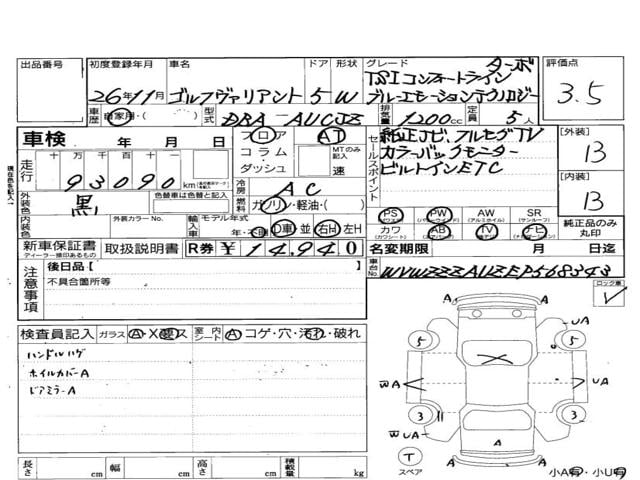 出品番号
初度登録年月
26年11月
車名
ゴルフヴァリアント
ドア
5
形状
W
グレード
ターボ
TSIコンフォートライン
ブルーエモーションテクノロジー
評価点
3.5
車歴
自家用・( )
型式
DBA-AUCJZ
排気量
1200cc
定員
5人
車検 年 月 日
フロア
コラム
ダッシュ
AT
MTのみ記入
速
セールスポイント
純正ナビ、フルセグTV
カラーバックモニター
ビルトインETC
[外装]
13
[内装]
13
走行
十万千百十一
93090
km
冷房
AC
燃料
ガソリン・軽油・( )
外装色
黒
色替車は色替と記入
内装色
外装カラーNo.
輸入車
モデル年式
年・不明
D車
並
右H
左H
PS
(パワーステアリング)
PW
(パワーウィンドウ)
AW
(アルミホイル)
SR
(サンルーフ)
カワ
(カワシート)
AB
(エアバッグ)
TV
(テレビ)
ナビ
純正品のみ丸印
新車保証書
ディーラー捺印あるもの
取扱説明書
R券
¥14,940
名変期限 月 日迄
車台No.
WVWZZZAUZEP568343
注意事項
後日品【 】
不具合箇所等
ロック車
レ
検査員記入
ガラス
A・X・要・ス
室内シート
A コゲ・穴・汚れ・破れ
ハンドルハゲ
ホイルカバーA
ドアミラーA
A
A
UA
5
5
WA
UA
3
3
WUA
UA
A
A
A
T
スペア
小A有・小U有
長さ cm
幅 cm
高さ cm
積載量 kg
現在色を記入